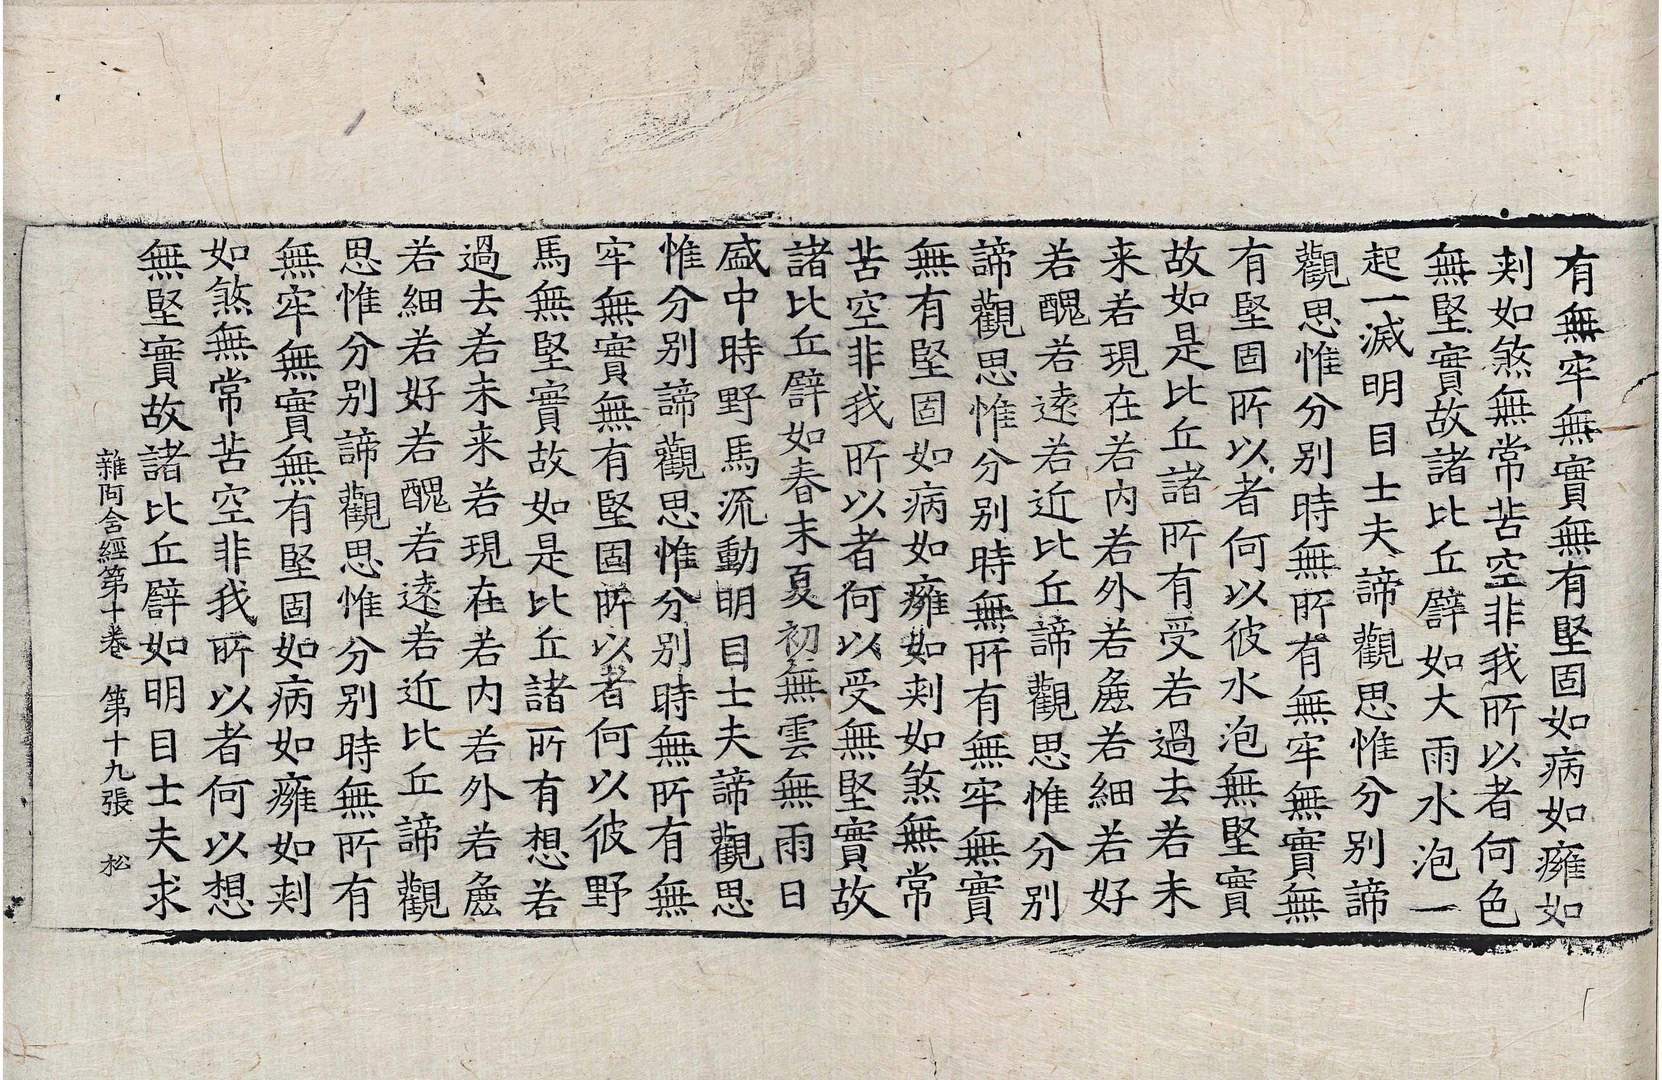 有無牢無實無有堅固如病如癕如
刾如煞無常苦空非我所以者何色
無堅實故諸比丘譬如大雨水泡一
起一滅明目士夫諦觀思惟分別諦
觀思惟分別時無所有無牢無實無
有堅固所以者何以彼水泡無堅實
故如是比丘諸所有受若過去若未
来若現在若內若外若麁若細若好
若醜若遠若近比丘諦觀思惟分別
諦觀思惟分別時無所有無牢無實
無有堅固如病如癕如刾如煞無常
苦空非我所以者何以受無堅實故
諸比丘譬如春末夏初無雲無雨日
盛中時野馬流動明目士夫諦觀思
惟分別諦觀思惟分別時無所有無
牢無實無有堅固所以者何以彼野
馬無堅實故如是比丘諸所有想若
過去若未来若現在若內若外若麁
若細若好若醜若遠若近比丘諦觀
思惟分別諦觀思惟分別時無所有
無牢無實無有堅固如病如癕如刾
如煞無常苦空非我所以者何以想
無堅實故諸比丘譬如明目士夫求
雜阿含經第十卷 第十九張 松